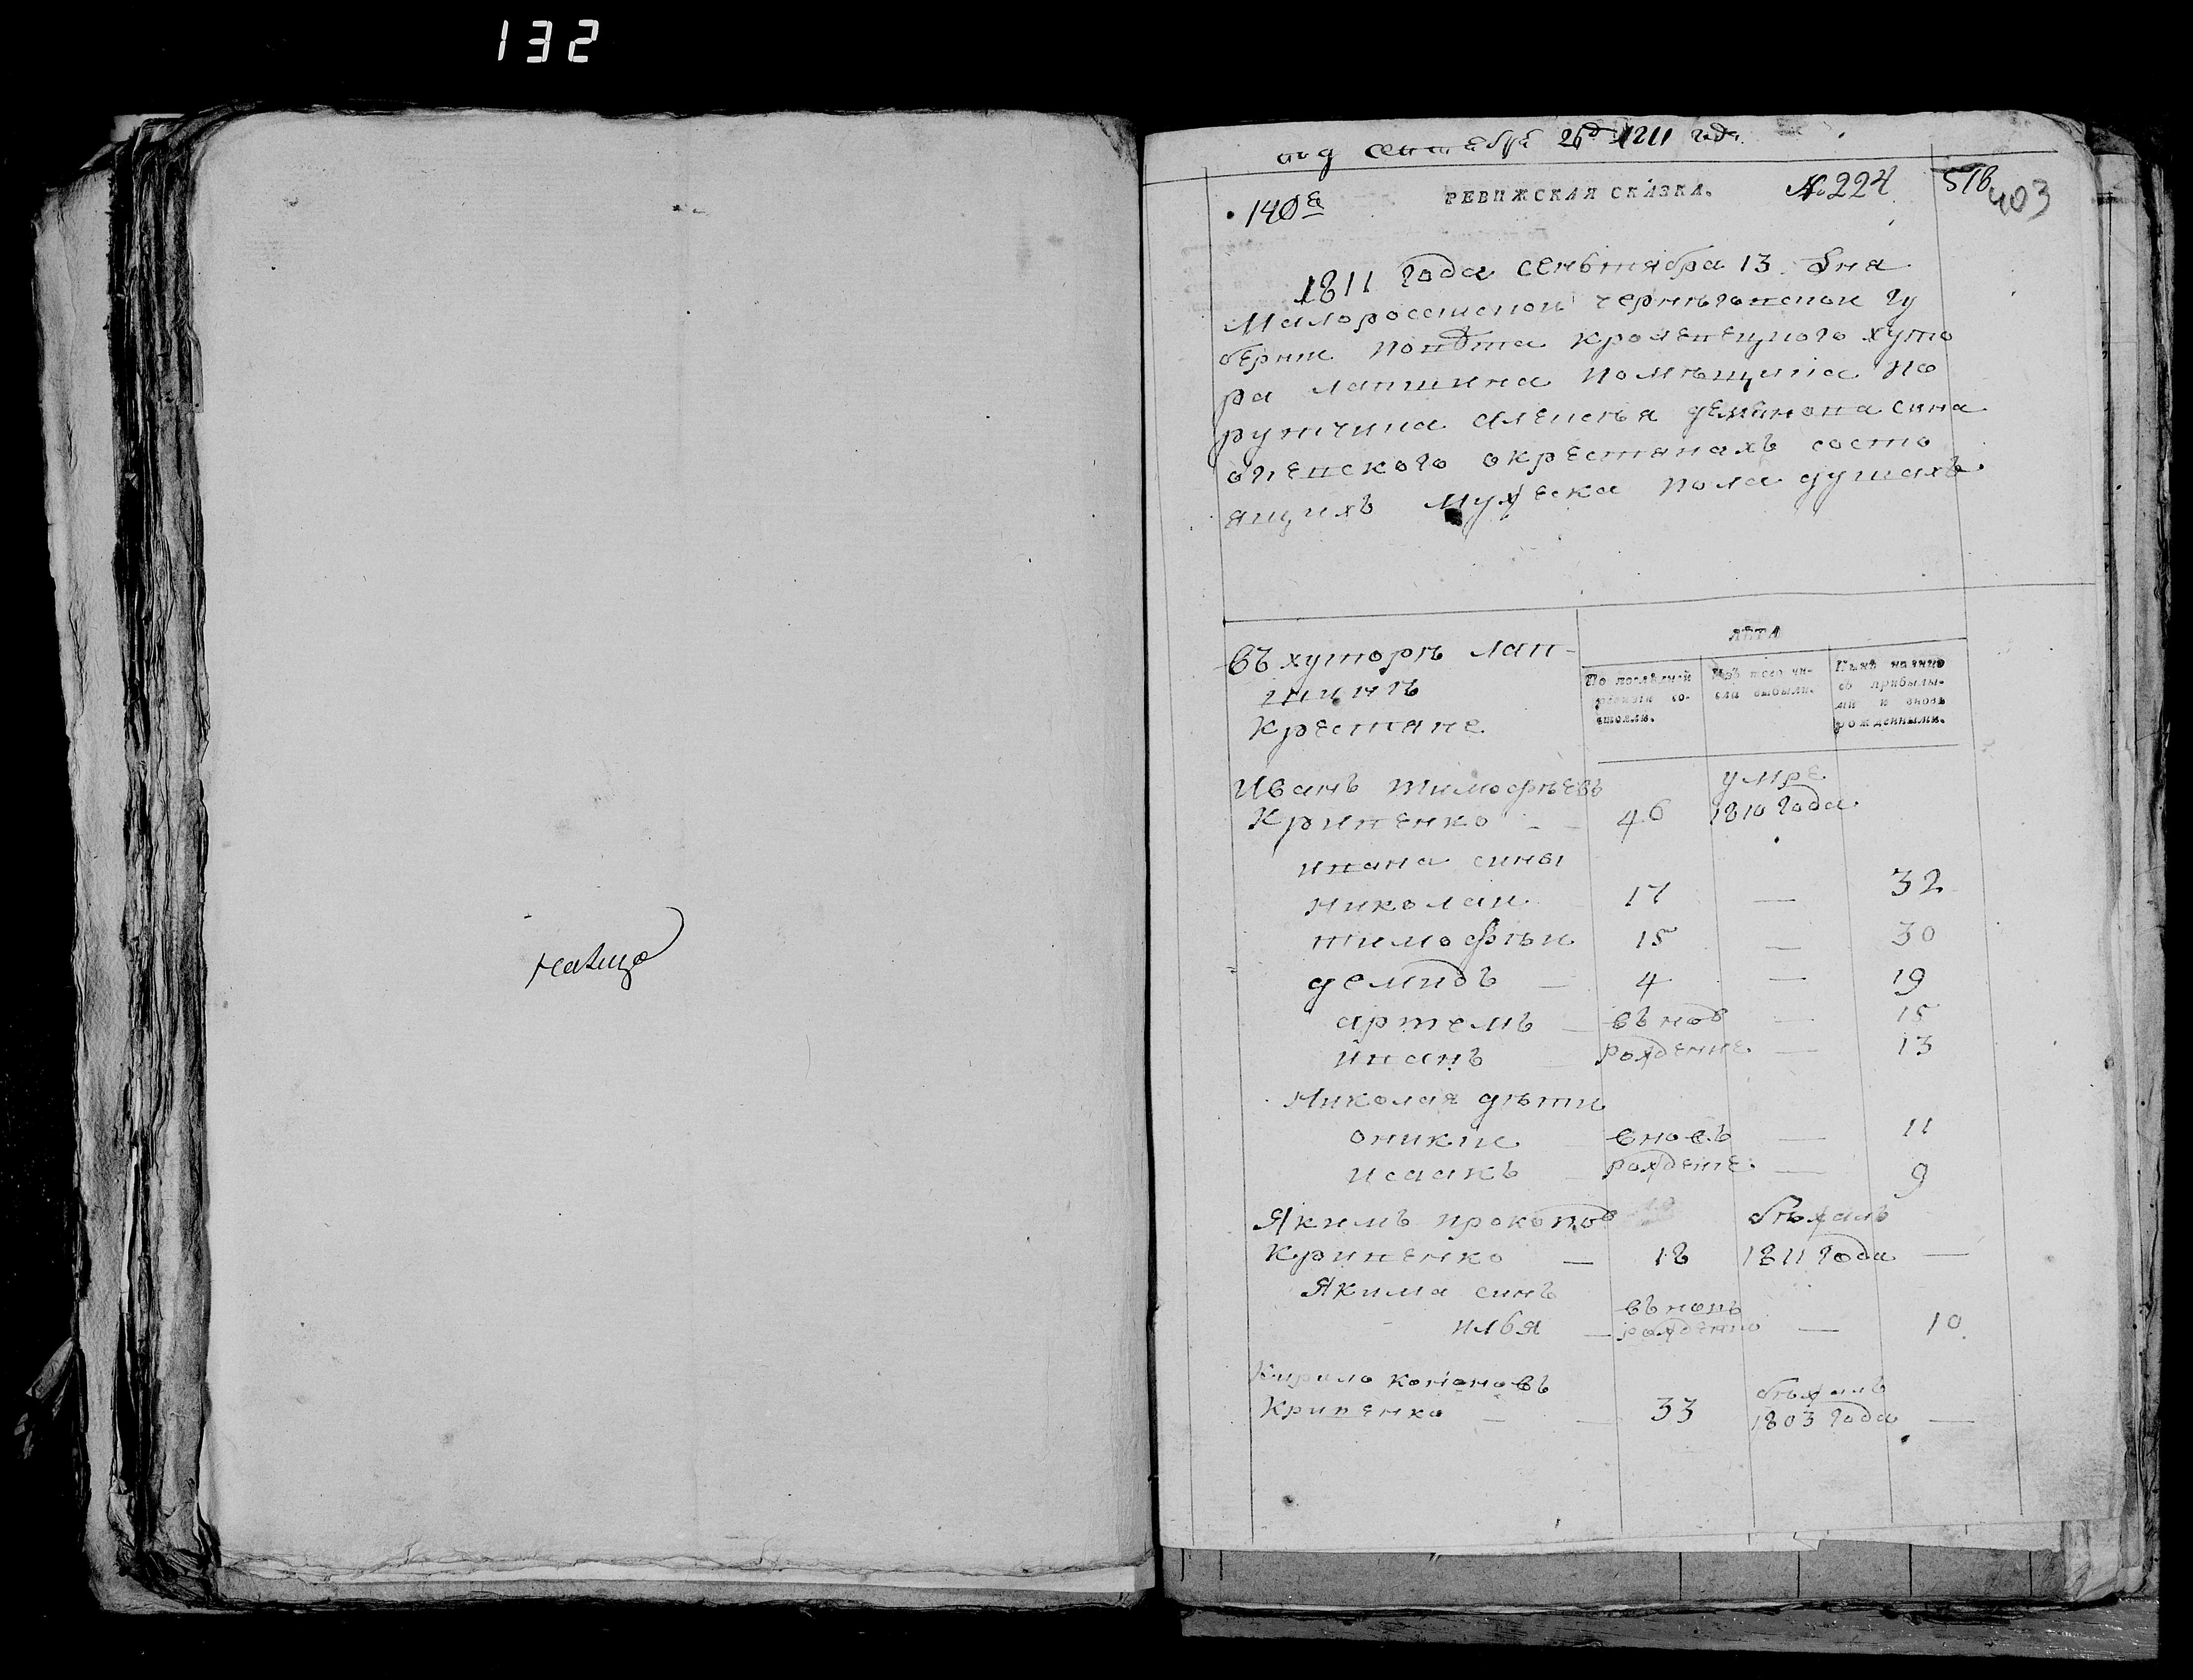 132
сентября 26д 1811 года
140е
РЕВИЖСКАЯ СКАЗКА.
№ 224
516
403
1811 Года сенътября 13 дня
Малоросиской черниговской гу
бернии повѣта кролевецкого хуто
ра лапшина помѣщика по
рутчика алексѣя демянова сина
окрестянахъ состо
ящихъ мужеска пола душахъ
Въ хуторѣ лап-
шинѣ
Крестяне
ЛѢТА
По послѣдней ревизіи состояли.
Изъ того числа выбыли.
Нынѣ налицо съ прибылыми и вновь рожденными.
Иванъ тимофѣевъ
Кривенко 46 умре 1810 года
ивана сины
николаи 17 — 32
тимофѣи 15 — 30
демидъ — 4 — 19
артемъ — въ нов — 15
иванъ рождение — 13
Николая дѣти
оникии вновъ — 11
исаакъ рождение — 9
Якимъ прокопов
Кривенко — 18 бѣжалъ 1811 года —
Якима синъ
илья — въ новъ рождено — 10
Кирило кононовъ
Кривенко — 33 бѣжалъ 1803 года —